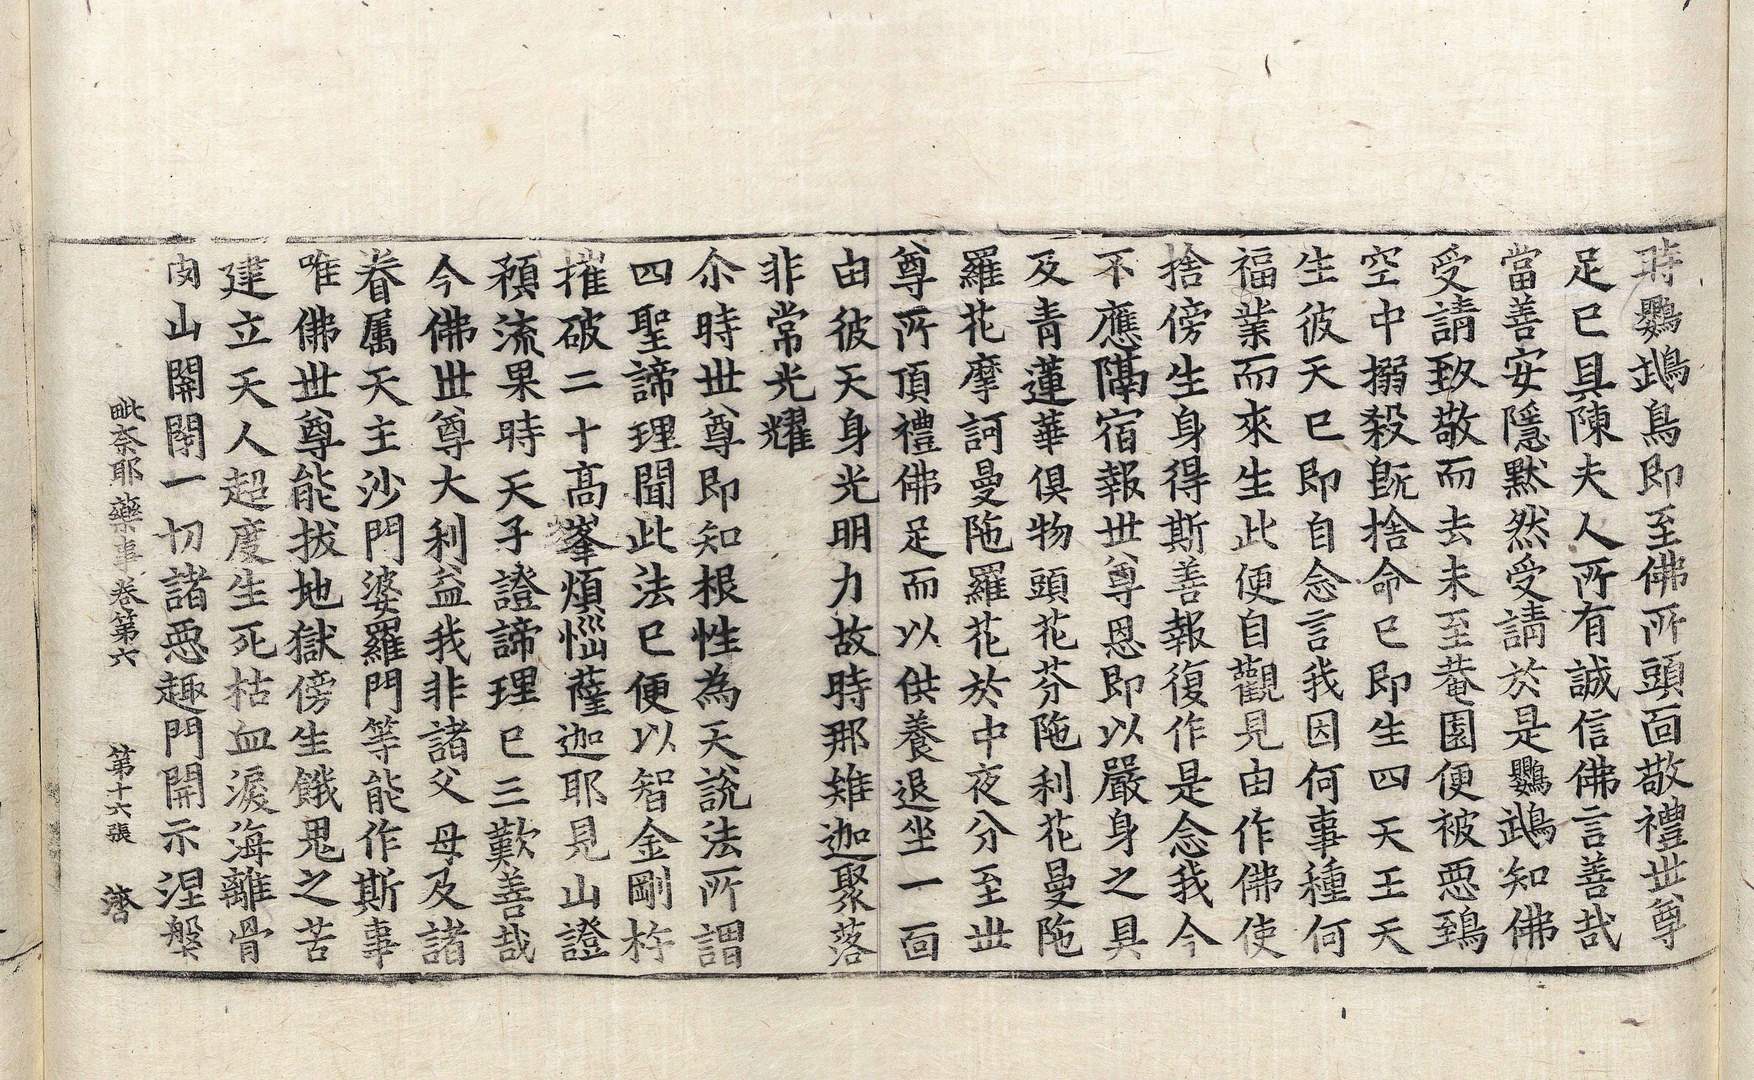 時鸚鵡鳥即至佛所頭面敬禮世尊
足已具陳夫人所有誠信佛言善哉
當善安隱默然受請於是鸚鵡知佛
受請致敬而去未至菴園便被惡鵄
空中搦殺旣捨命已即生四天王天
生彼天已即自念言我因何事種何
福業而來生此便自觀見由作佛使
捨傍生身得斯善報復作是念我今
不應隔宿報世尊恩即以嚴身之具
及青蓮華俱物頭花芬陁利花曼陁
羅花摩訶曼陁羅花於中夜分至世
尊所頂禮佛足而以供養退坐一面
由彼天身光明力故時那雉迦聚落
非常光耀
尒時世尊即知根性為天說法所謂
四聖諦理聞此法已便以智金剛杵
摧破二十高峯煩惱薩迦耶見山證
預流果時天子證諦理已三歎善哉
今佛世尊大利益我非諸父母及諸
眷属天主沙門婆羅門等能作斯事
唯佛世尊能拔地獄傍生餓鬼之苦
建立天人超度生死枯血淚海離骨
肉山關閉一切諸惡趣門開示涅槃
毗奈耶藥事卷第六 第十六張